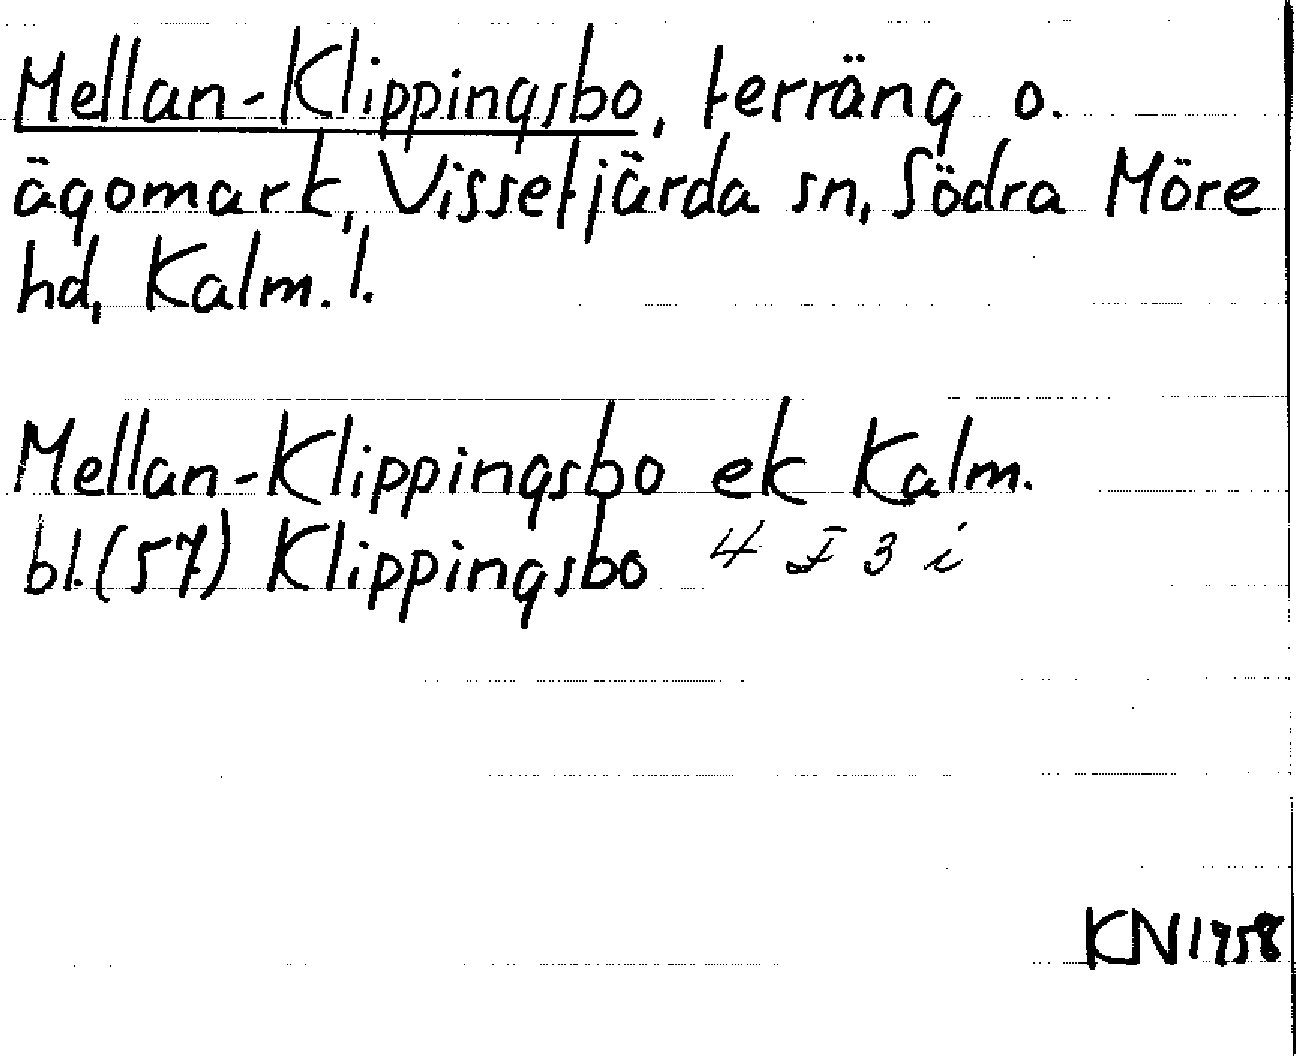 Mellan-Klippingsbo, terräng o.
ägomark, Vissefjärda sn, Södra Möre
hd, Kalm. l.
Mellan-Klippingsbo ek Kalm.
bl. (57) Klippingsbo 4 F 3 i
KN 1958